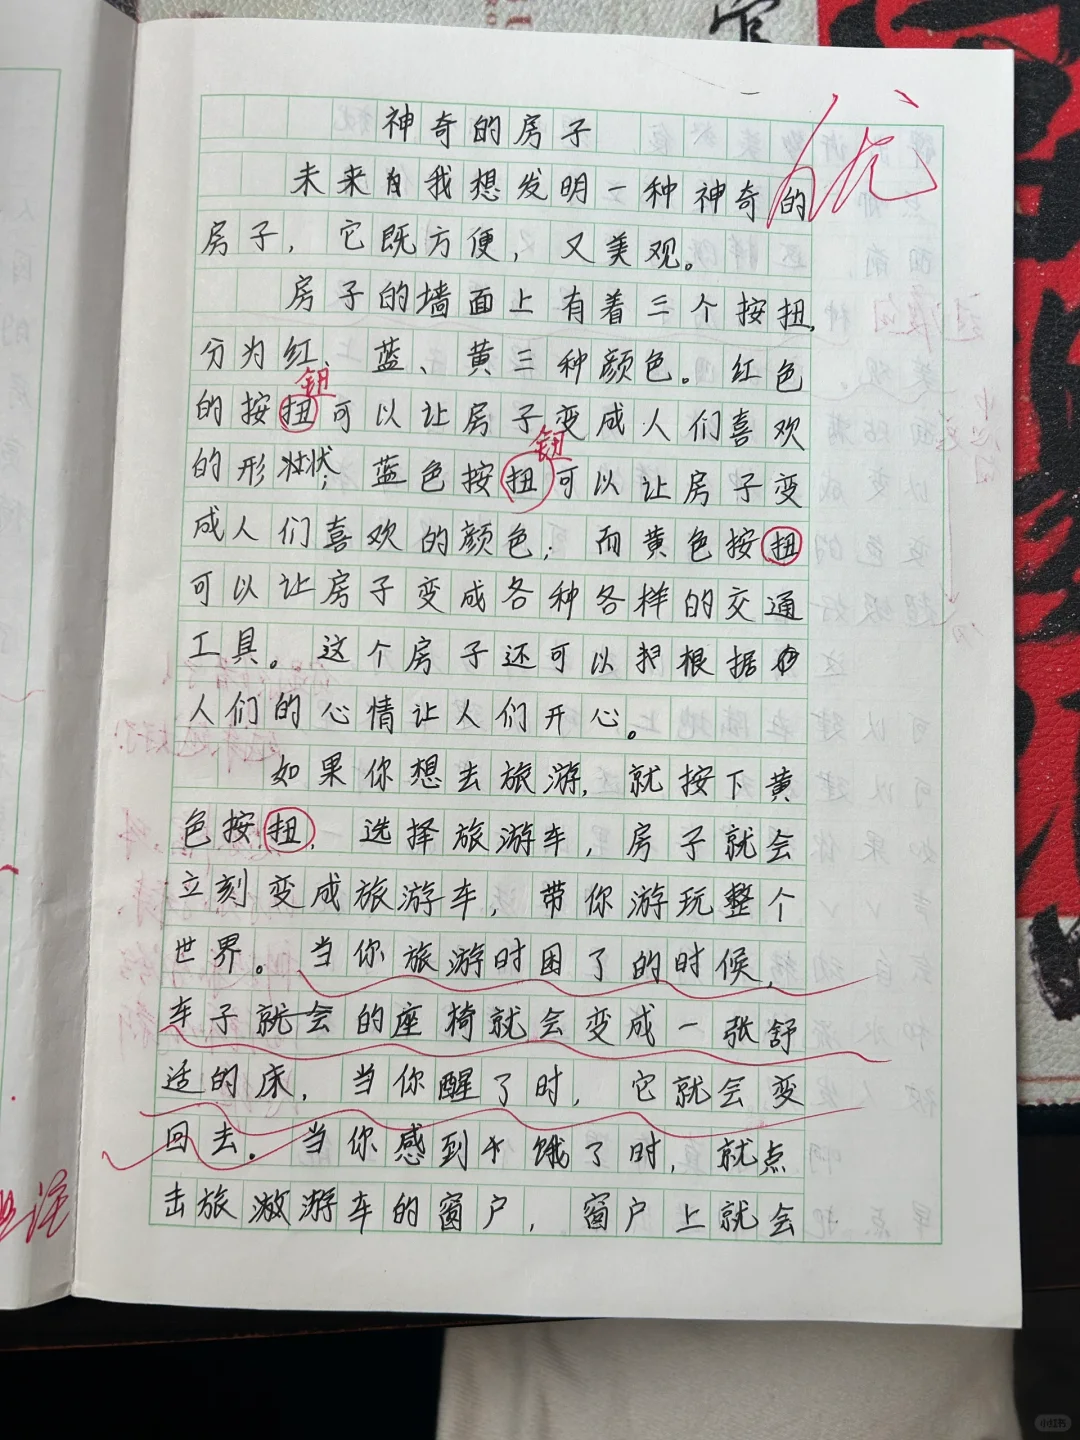 神奇的房子
优
未来我想发明一种神奇的
房子，它既方便，又美观。
房子的墙面上有着三个按扭，
分为红、蓝、黄三种颜色。红色
钮
的按扭可以让房子变成人们喜欢
钮
的形状；蓝色按扭可以让房子变
成人们喜欢的颜色；而黄色按扭
可以让房子变成各种各样的交通
工具。这个房子还可以根据
人们的心情让人们开心。
如果你想去旅游，就按下黄
色按扭，选择旅游车，房子就会
立刻变成旅游车，带你游玩整个
世界。当你旅游时困了的时候，
车子就会的座椅就会变成一张舒
适的床，当你醒了时，它就会变
回去。当你感到饿了时，就点
击旅游车的窗户，窗户上就会
小红书